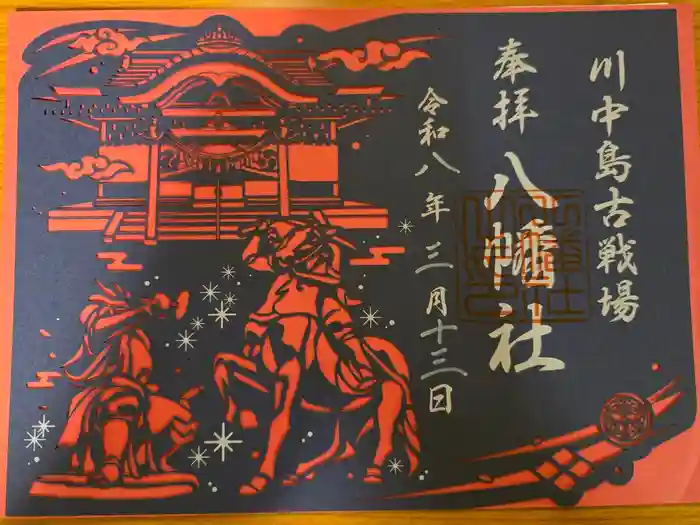 川中島古戦場
奉拝
八幡社
令和八年 三月十三日